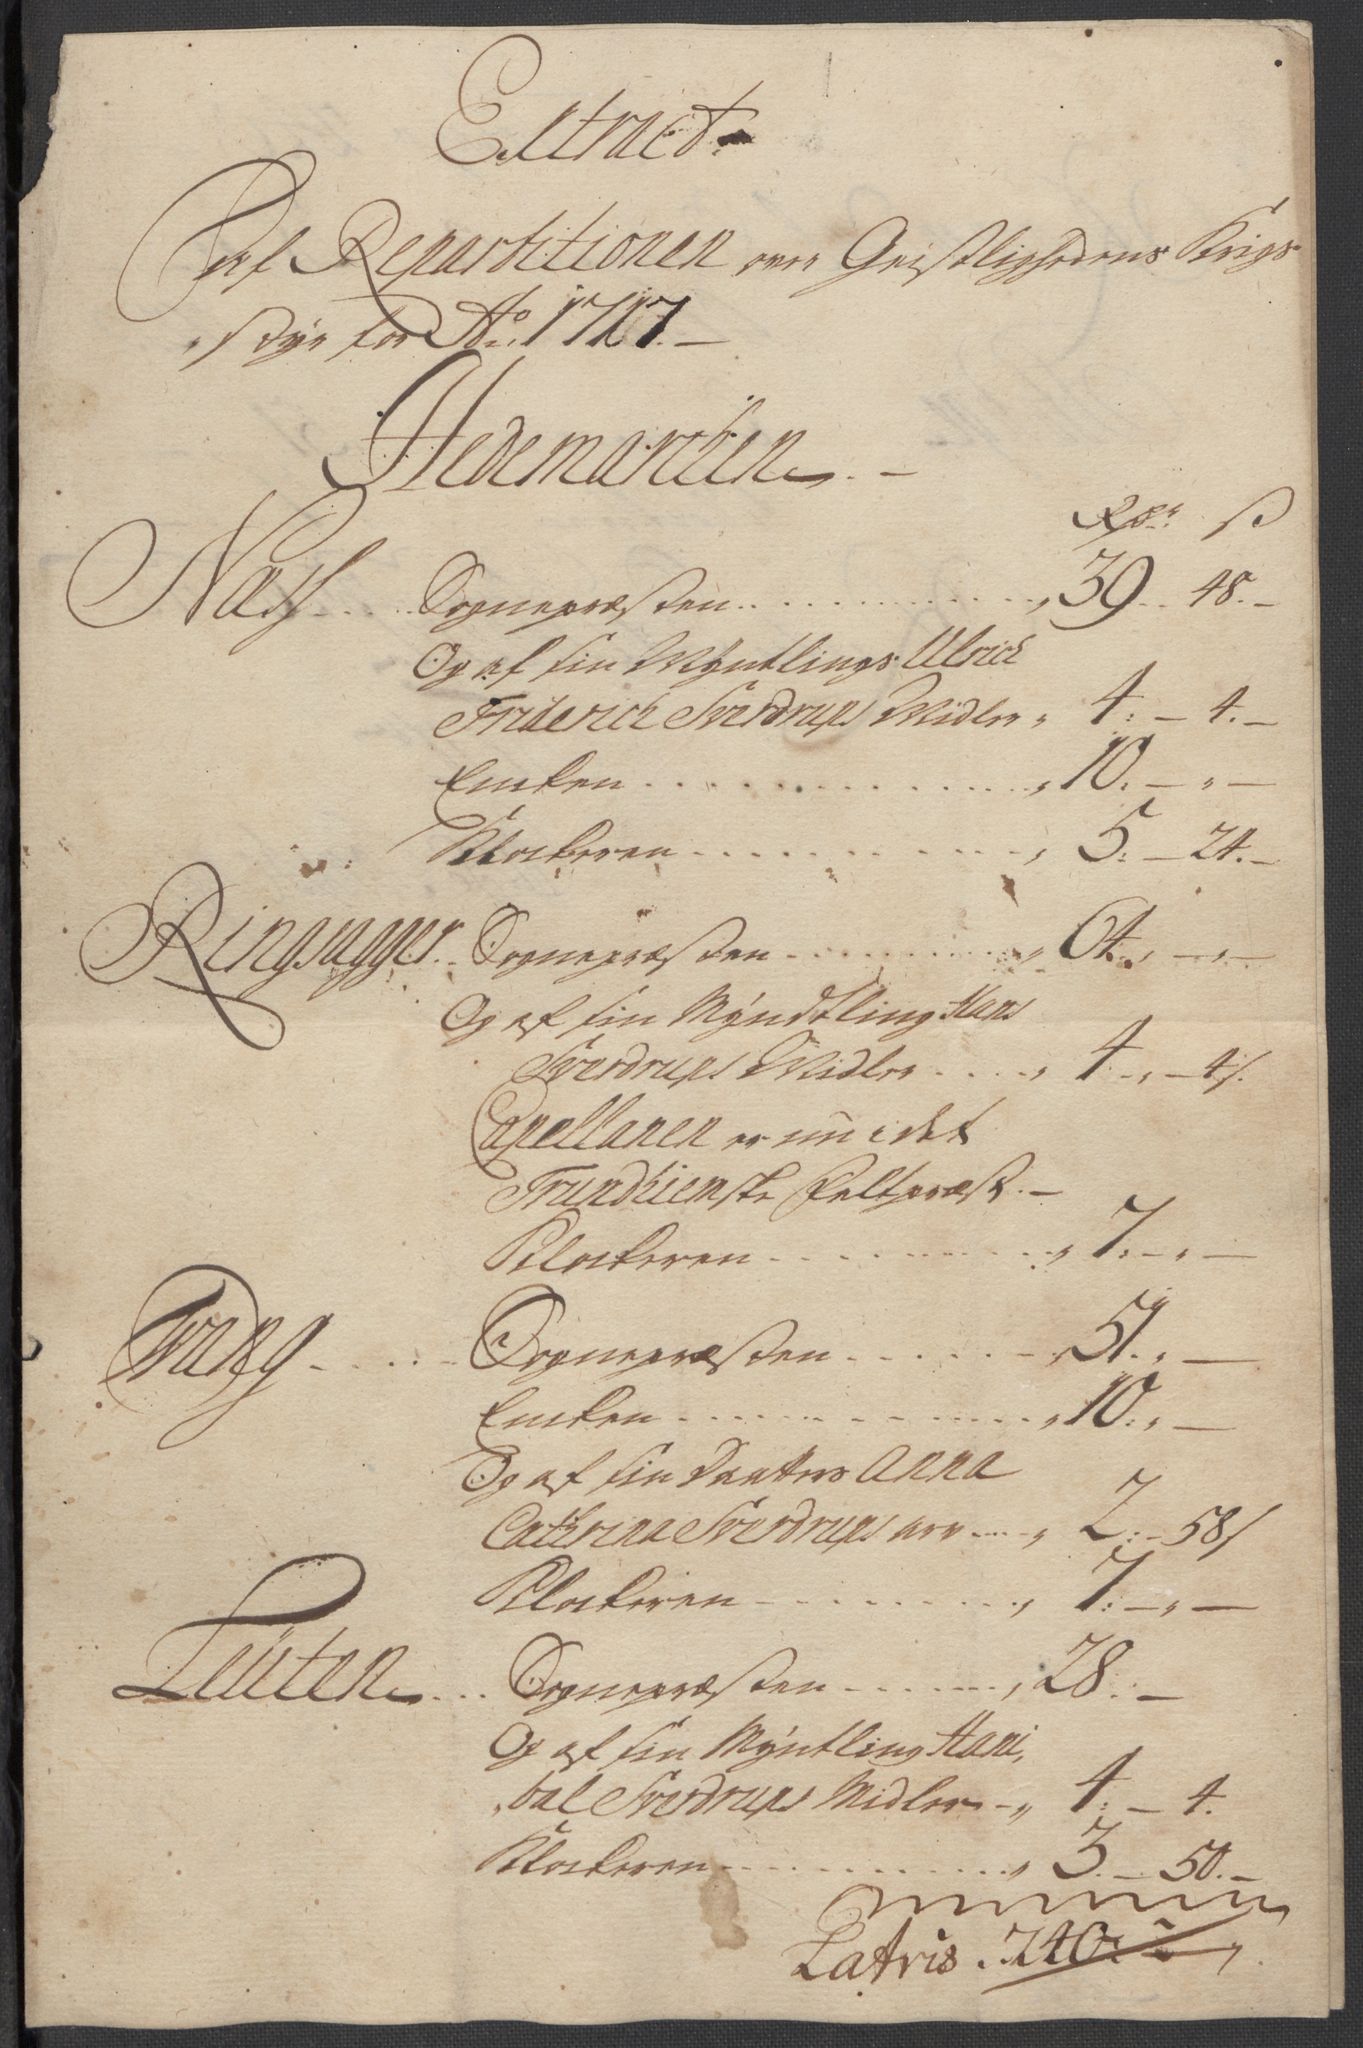 Extract
Af Repartitionen over Geistlighedens Krigs
styr for Ao. 1717.
Hedemarcken.
Rdr. ß
Næss Sognepræsten 39. 48.
Og af sin Myntlings Ulrich
Friderich Sverdrups Midler 4. 4.
Encken 10.
Klockeren 5. 24.
Ringsagger Sognepræsten 64.
Og af sin Myndtling Hans
Sverdrups Midler 4. 4 ß.
Capellanen er nu i det
Trundhiemske feltpræst.
Klockeren 7.
Wang Sognepræsten 51.
Encken 10.
Og af sin Daatters Anna
Cathrina Sverdrups arv 2. 58 ß
Klockeren 7.
Leuten Sognepræsten 28.
Og af sin Myntling Hani,
bal Sverdrups Midler 4. 4.
Klockeren 3. 50.
Latris. 240: